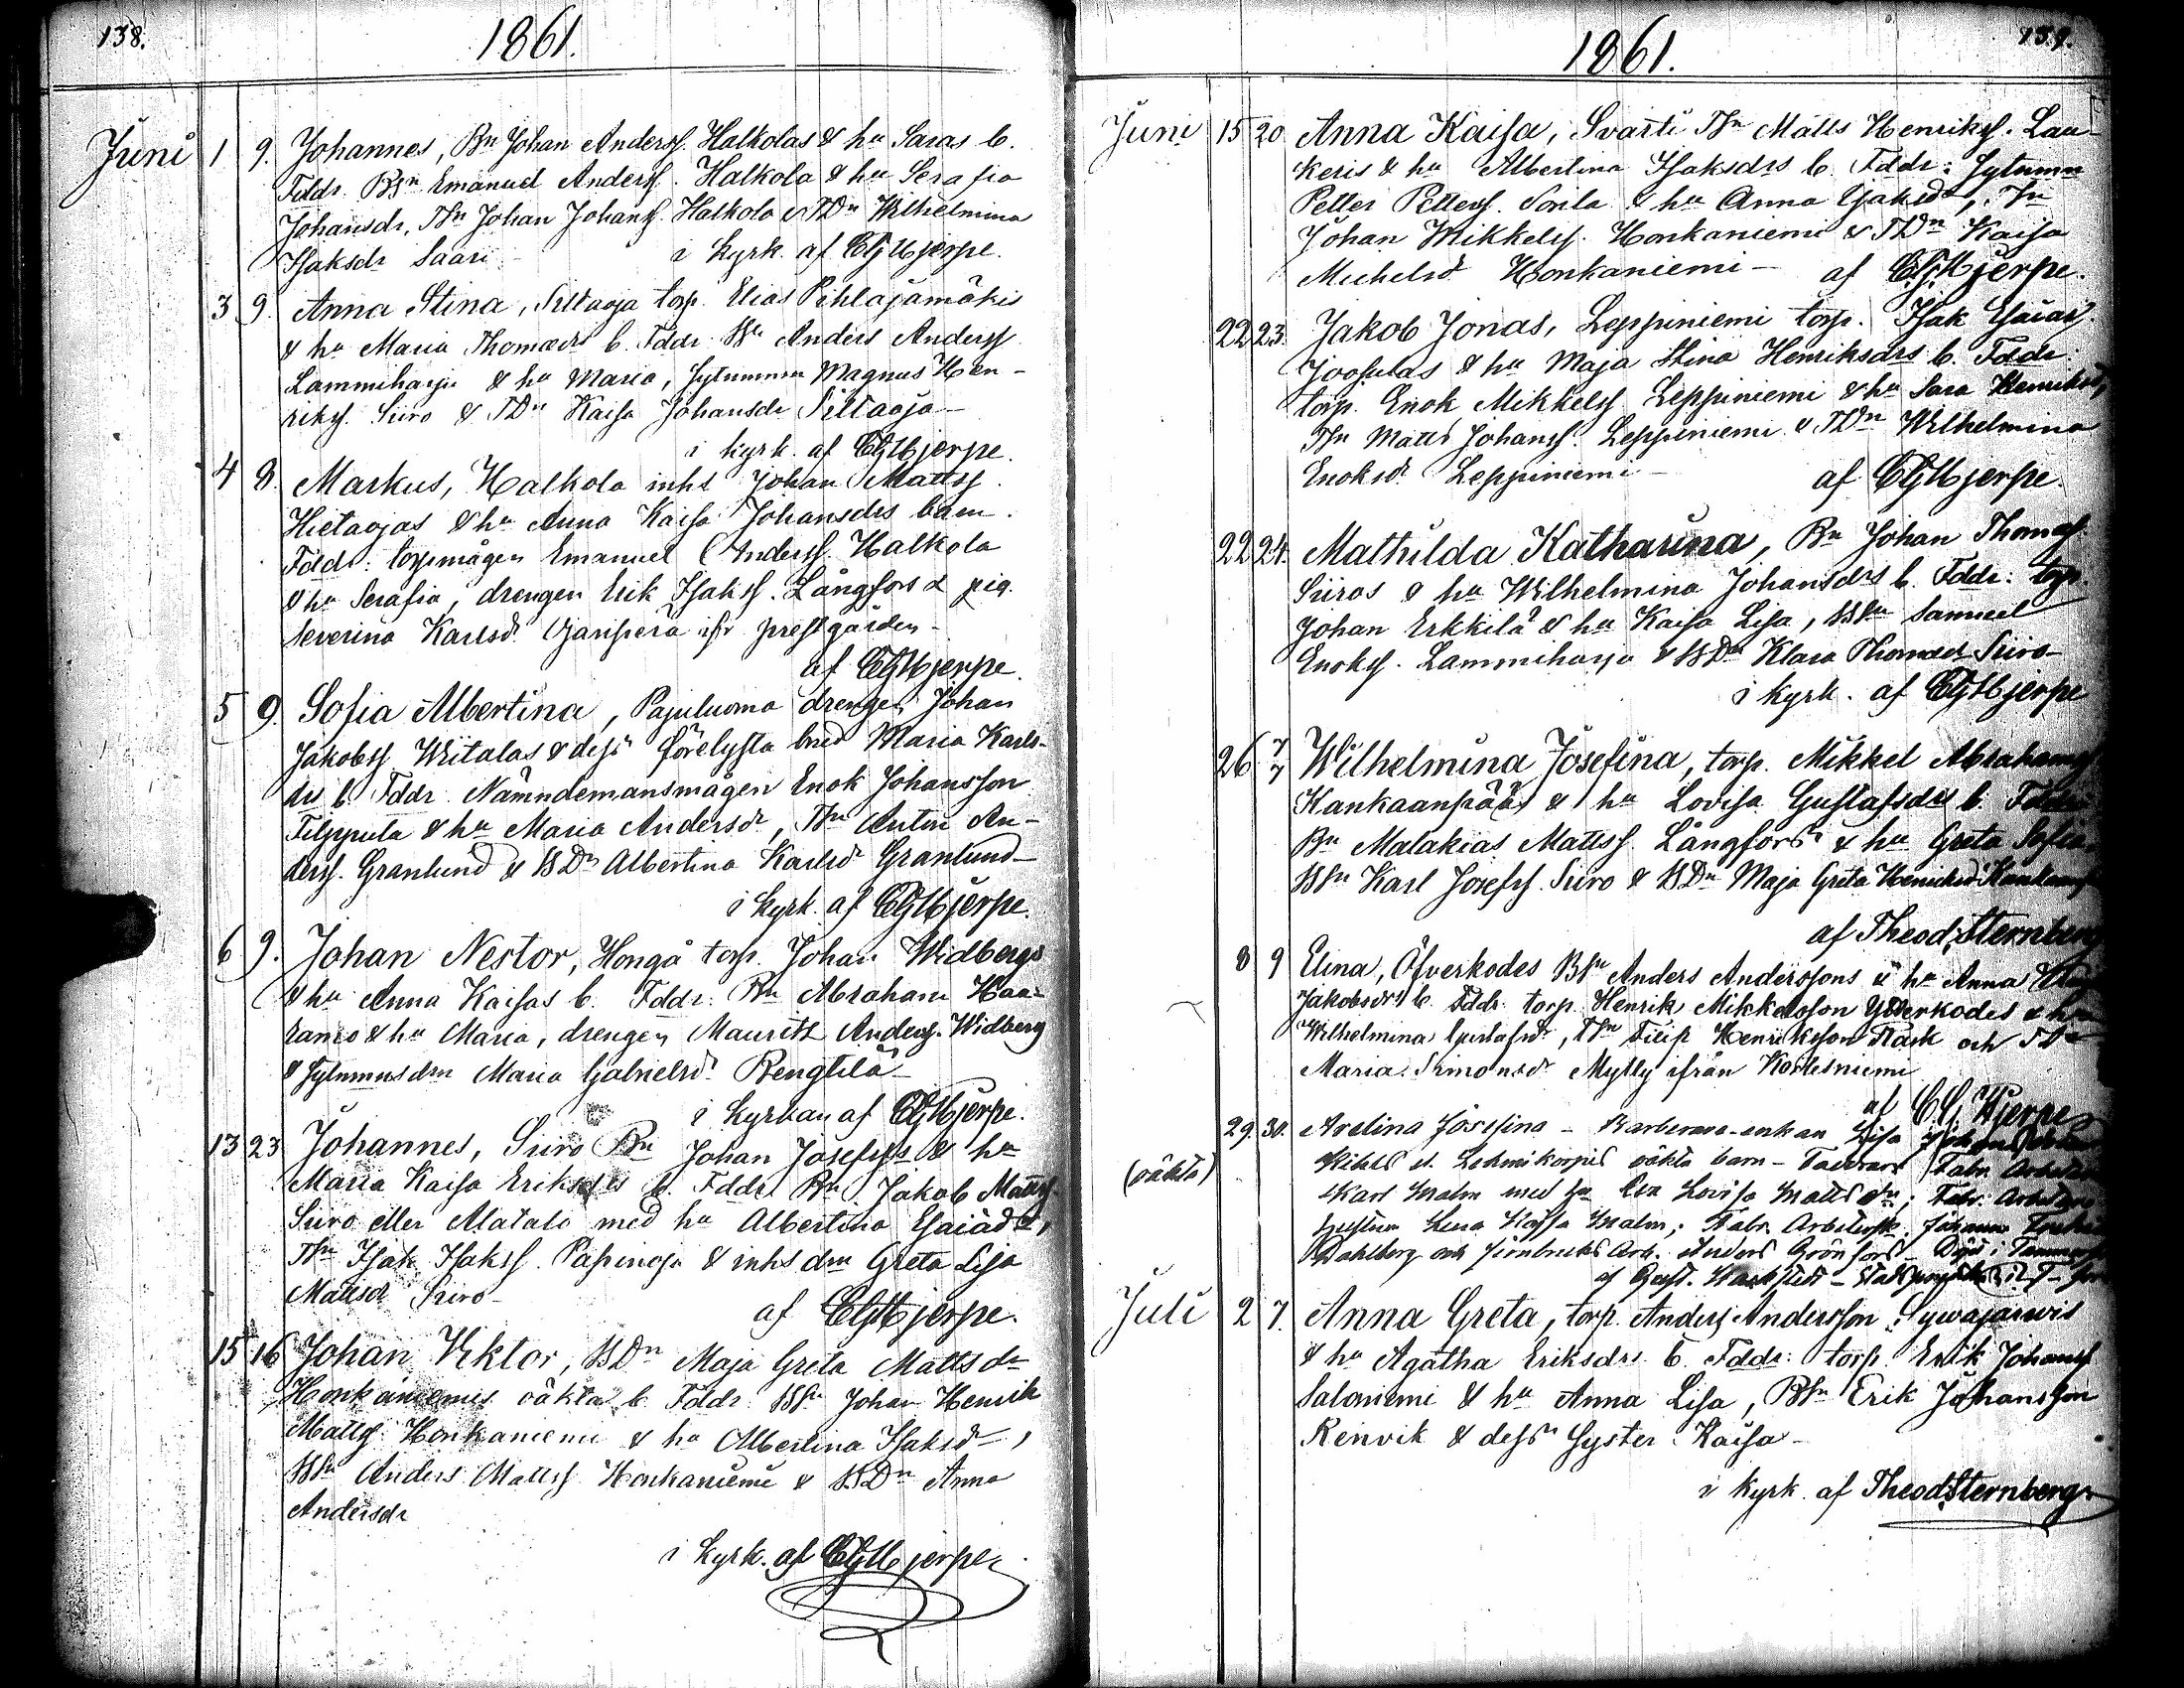 138.
1861.
Juni 1 9. Johannes, Bn Johan Anderss. Halkolas & hu Saras b.
Fddr. BSn Emanuel Anderss. Halkola & hu Serafia
Johansdr, TSn Johan Johanss. Halkola & TDn Wilhelmina
Isaksdr Saari - i kyrk. af CGHjerpe.
3 9. Anna Stina, Siltaoja torp. Elias Pihlajamäkis
& hu Maria Thomædrs b. Fddr. BSn Anders Anderss
Lammiharju & hu Maria, sytnmn Magnus Hen-
rikss. Siiro & TDn Kaisa Johansdr Siltaoja -
i kyrk. af CGHjerpe.
4 8. Markus, Halkola inhs Johan Mattss.
Hietaojas & hu Anna Kaisa Johansdrs barn.
Fddr: torpmågen Emanuel Anderss. Halkola
& hu Serafia, drengen Erik Isakss. Långfors & pig.
Severina Karlsd. ifr prestgården -
af CGHjerpe.
5 9. Sofia Albertina, Pajuluoma drengen Johan
Jakobss. Wiitalas & dess förelysta brud Maria Karls-
drs b. Fddr. Nämndemansmågen Enok Johansson
Filppula & hu Maria Andersdr, TSn Anton An-
derss. Granlund & BDn Albertina Karlsdr Granlund -
i kyrk. af CGHjerpe.
6 9. Johan Nestor, Hongå torp. Johan Widbergs
& hu Anna Kaisas b. Fddr: Bn Abraham Haa-
ramo & hu Maria, drengen Maurits Anderss. Widberg
& sytnmnsdrn Maria Gabrielsdr Rengtilä -
i kyrkan af CGHjerpe.
13 23 Johannes, Siiro Bn Johan Josefss & hu
Maria Kaisa Eriksdrs b. Fddr Bn Jakob Mattss.
Siiro eller Alatalo med hu Albertina Esaiædr,
TSn Isak Isakss. Papinoja & inhs drn Greta Lisa
Mattsdr Siiro - af CGHjerpe.
15 16 Johan Viktor, BDn Maja Greta Mattsdr
Honkaniemis oäkta b. Fddr. BSn Johan Henrik
Mattss. Honkaniemi & hu Albertina Isaksdr,
BSn Anders Mattss. Honkaniemi & BDn Anna
Andersdr
i kyrk. af CGHjerpe
139.
1861.
Juni 15 20. Anna Kaisa, Svarti TSn Matts Henrikss. Lau-
keris & hu Albertina Isaksdrs b. Fddr: sytnmn
Petter Petterss. Sorila & hu Anna Esaiædr,
Johan Mikkelss. Honkaniemi & TDn Kaisa
Michelsd. Honkaniemi - af CGHjerpe.
22 23. Jakob Jonas, Leppiniemi torp. Isak Esaiass
Joosulas & hu Maja Stina Henriksdrs b. Fddr:
torp. Enok Mikkelss Leppiniemi & hu Sara Henriksdr,
TSn Matts Johanss. Leppiniemi & TDn Wilhelmina
Enoksdr Leppiniemi - af CGHjerpe.
22 24. Mathilda Katharina, Bn Johan Thomass.
Siiros & hu Wilhelmina Johansdrs b. Fddr: torp.
Johan Erkkilä & hu Kaisa Lisa, BSn Samuel
Enokss. Lammiharju & BDn Klara Thomædr Siiro -
i kyrk. af CGHjerpe
26 7/7 Wilhelmina Josefina, torp. Mikkel Abrahamss
Kankaanpääs & hu Lovisa Gustafsdrs b. Fddr
Bn Malakias Mattss. Långfors & hu Greta Sofia,
BSn Karl Josefss. Siiro & BDn Maja Greta Henriksdr
af Theod. Sternberg
8 9 Elina, Öfverkodes BSn Anders Anderssons & hu Anna
Jakobsdrs b. Fddr. torp. Henrik Mikkelsson Ytterkodes & hu
Wilhelmina Gustafsdr, TSn Filip Henriksson Rask och TD
Maria Simonsdr Mylly ifrån Koskesniemi
af CG Hjerpe
29. 30. Avelina Josefina - enkan Lisa
(oäkta)
oäkta barn - Faddrar Fabr. Arbetar
Karl Malm med hu Eva Lovisa Mattsdr; Fabr. Arbetar
Lena Kajsa Malm; Fabr. Arbetersk. Johanna
Dahlberg och Arb. Anders Grönfors -
af Gust.
Juli 2 7. Anna Greta, torp. Anders Andersson Sywäjärwis
& hu Agatha Eriksdrs b. Fddr: torp. Erik Johanss
Saloniemi & hu Anna Lisa, BSn Erik Johansson
Renvik & dess Syster Kaisa -
i kyrk. af Theod. Sternberg